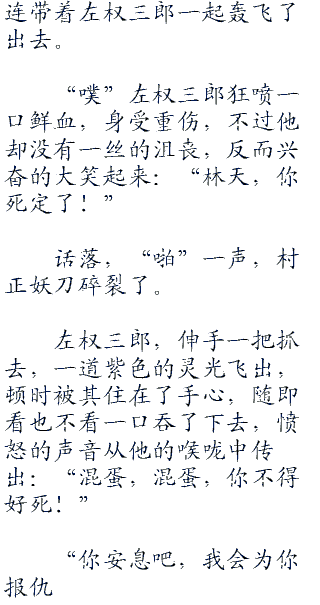 连带着左权三郎一起轰飞了
出去。
“噗”左权三郎狂喷一
口鲜血，身受重伤，不过他
却没有一丝的沮丧，反而兴
奋的大笑起来：“林天，你
死定了！”
话落，“啪”一声，村
正妖刀碎裂了。
左权三郎，伸手一把抓
去，一道紫色的灵光飞出，
顿时被其住在了手心，随即
看也不看一口吞了下去，愤
怒的声音从他的喉咙中传
出：“混蛋，混蛋，你不得
好死！”
“你安息吧，我会为你
报仇